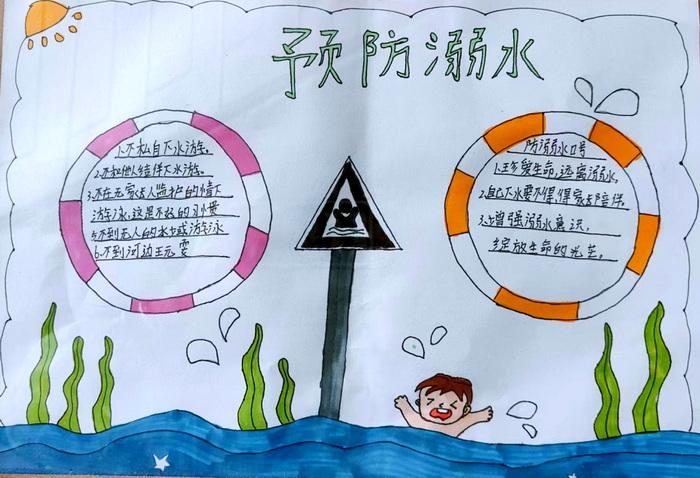 预防溺水
1.不私自下水游泳.
2.不和他人结伴下水游泳.
3.不在无家长人监护的情下
游泳,这是不好的习惯
5.不到无人的水域游泳
6.不到河边玩耍
防溺水口号
1.珍爱生命,远离溺水,
2.自己下水要不得,得家长陪伴.
3.增强溺水意识,
绽放生命的光芒,